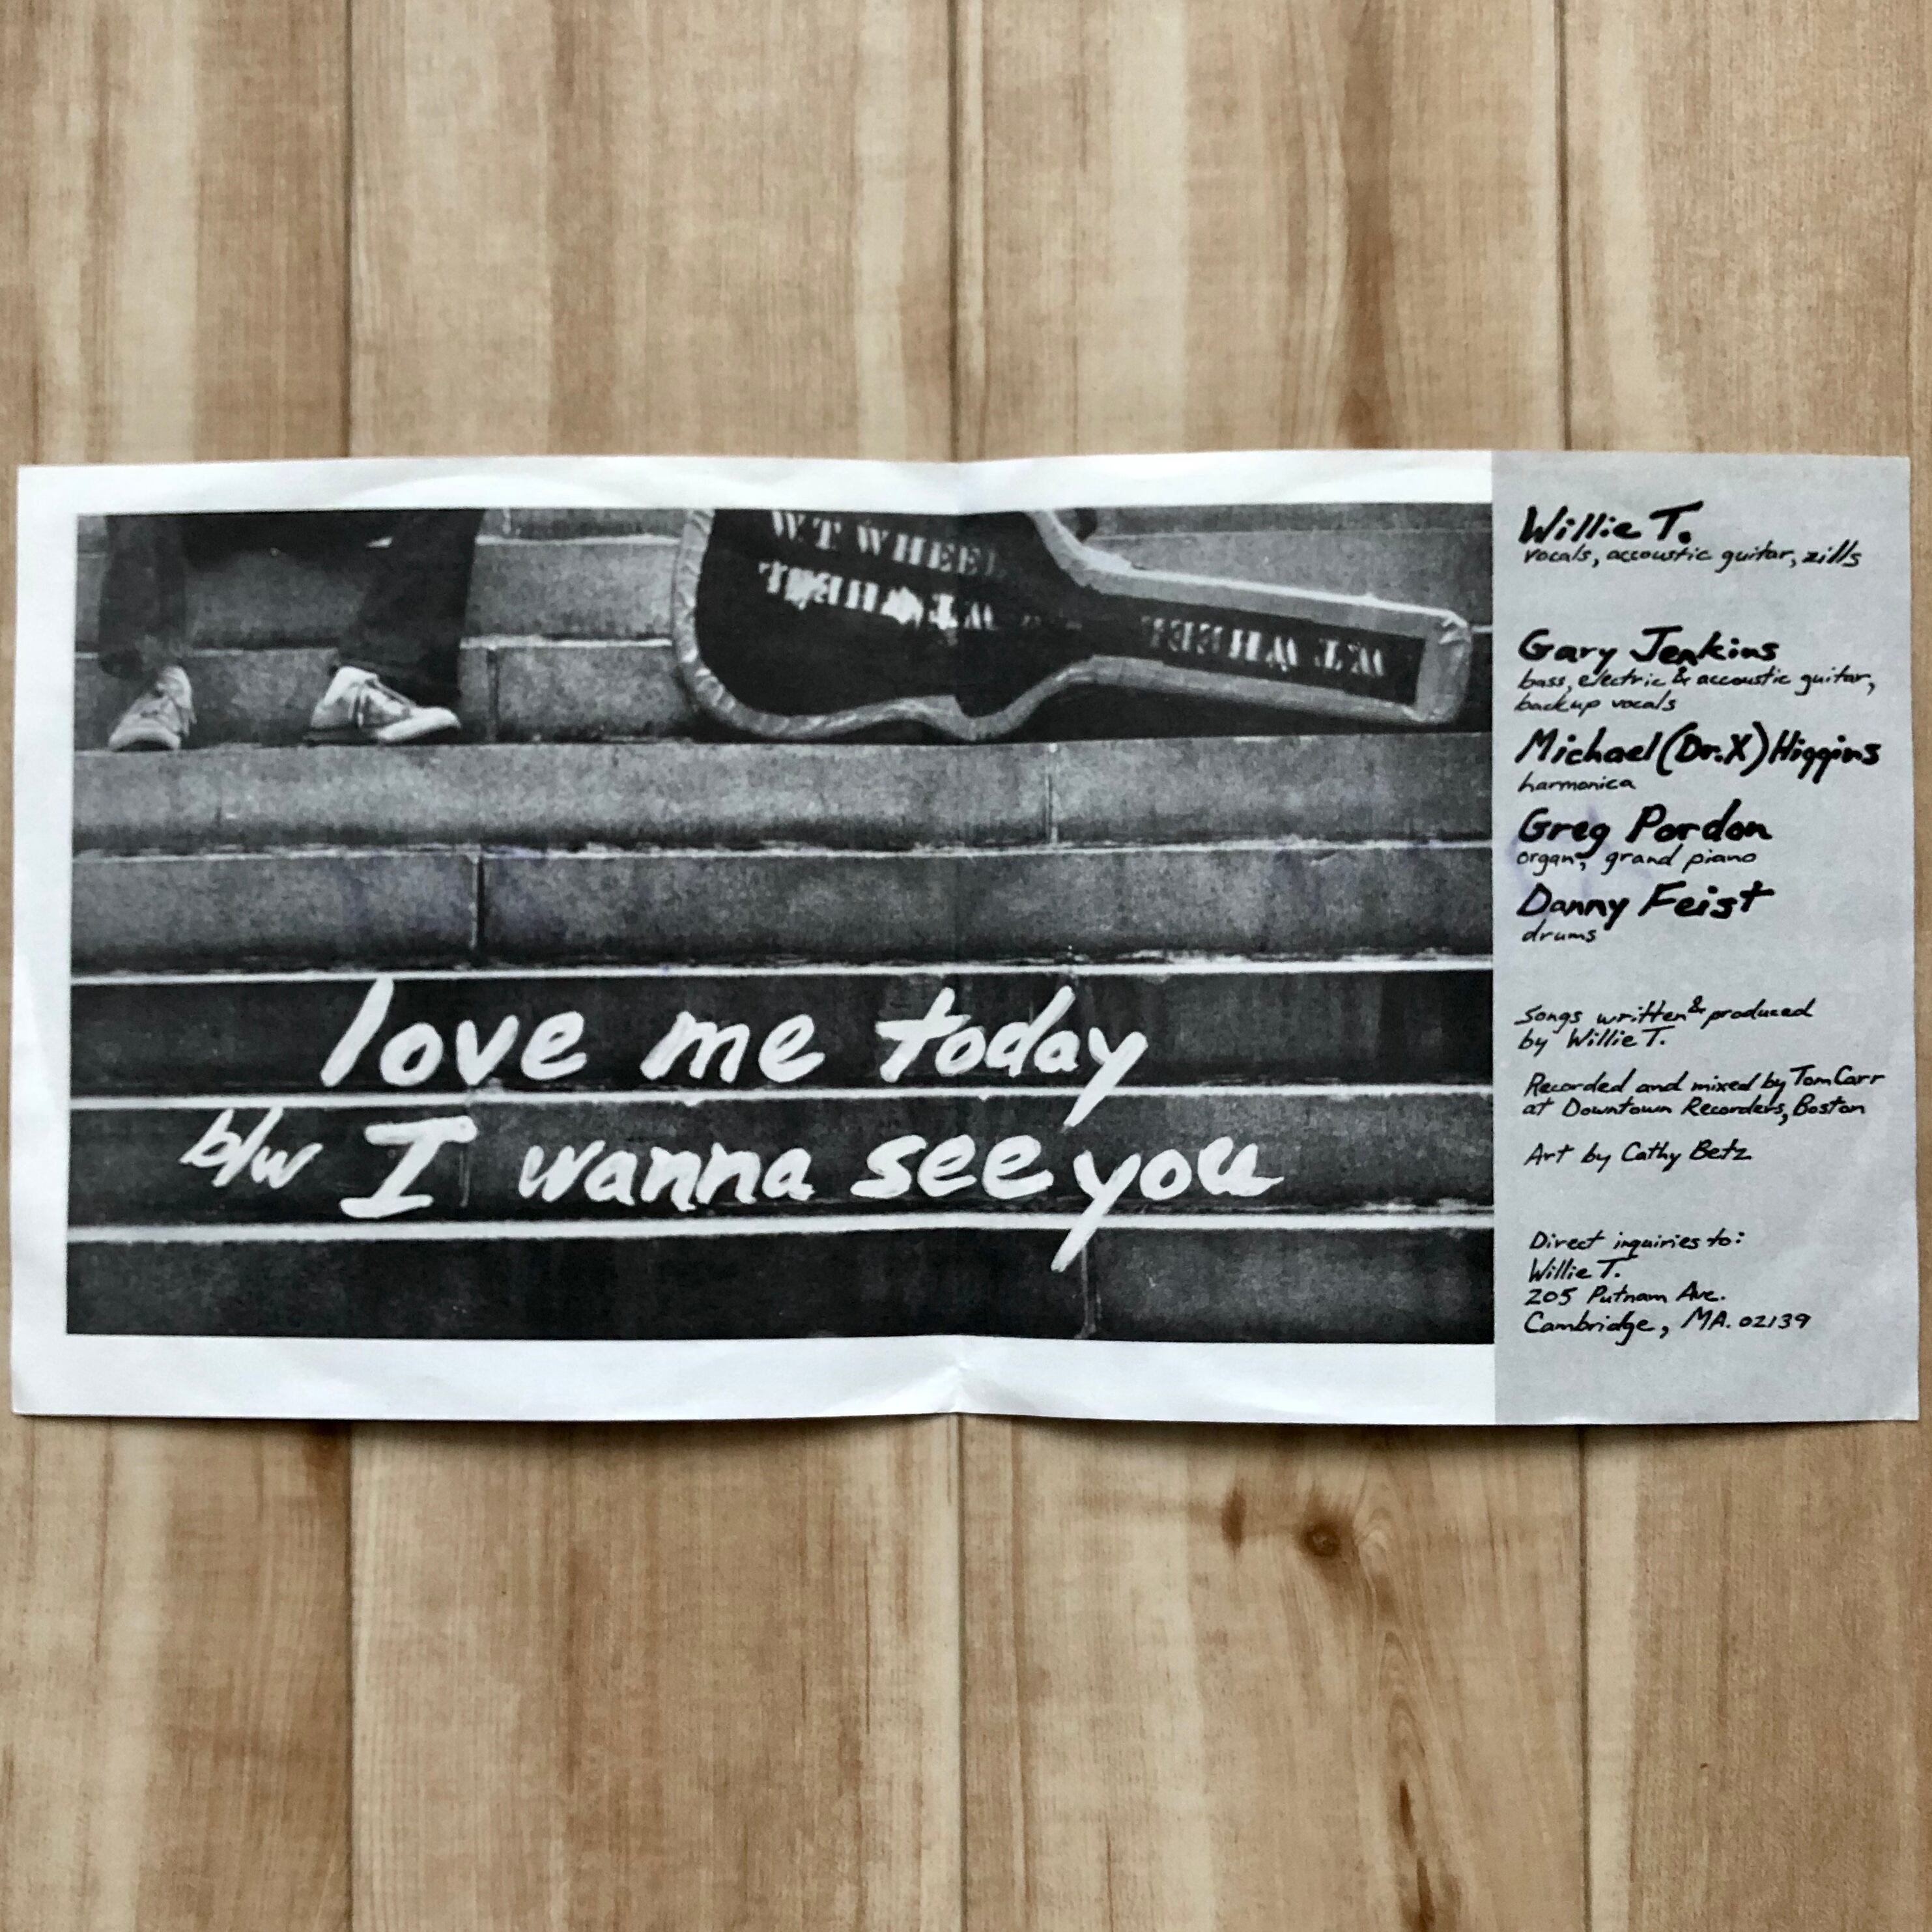 W.T WHEEL
W.T WHEEL
W.T. WHEEL
love me today
b/w I wanna see you
Willie T.
vocals, accoustic guitar, zills
Gary Jenkins
bass, electric & accoustic guitar,
backup vocals
Michael (Dr.X) Higgins
harmonica
Greg Pordon
organ, grand piano
Danny Feist
drums
Songs written & produced
by Willie T.
Recorded and mixed by Tom Carr
at Downtown Recorders, Boston
Art by Cathy Betz
Direct inquiries to:
Willie T.
205 Putnam Ave.
Cambridge, MA. 02139